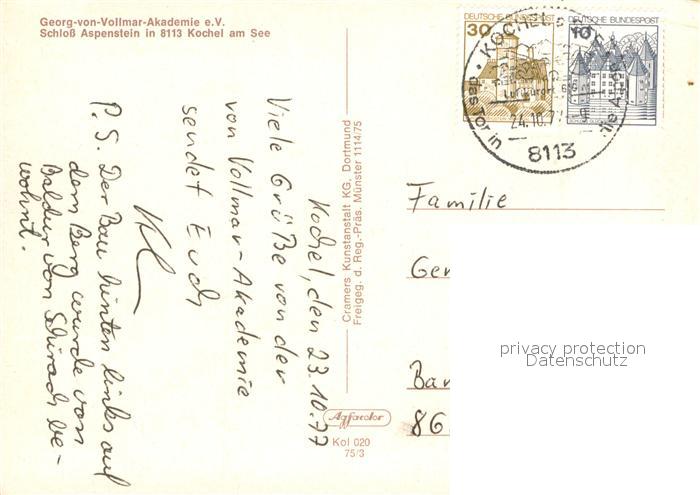 Georg-von-Vollmar-Akademie e.V.
Schloß Aspenstein in 8113 Kochel am See
Kochel, den 23.10.77
Viele Grüße von der
von Vollmar-Akademie
sendet Euch
P.S. Der Bau hinten links auf
dem Berg wurde von
Baldur von Schirach be-
wohnt.
Cramers Kunstanstalt KG, Dortmund
Freigeg. d. Reg.-Präs. Münster 1114/75
Agfacolor
Kol 020
75/3
DEUTSCHE BUNDESPOST
30
DEUTSCHE BUNDESPOST
10
KOCHEL
das Tor in
Luftkurort
24.10.77
8113
Familie
Ger
Bar
86
privacy protection
Datenschutz